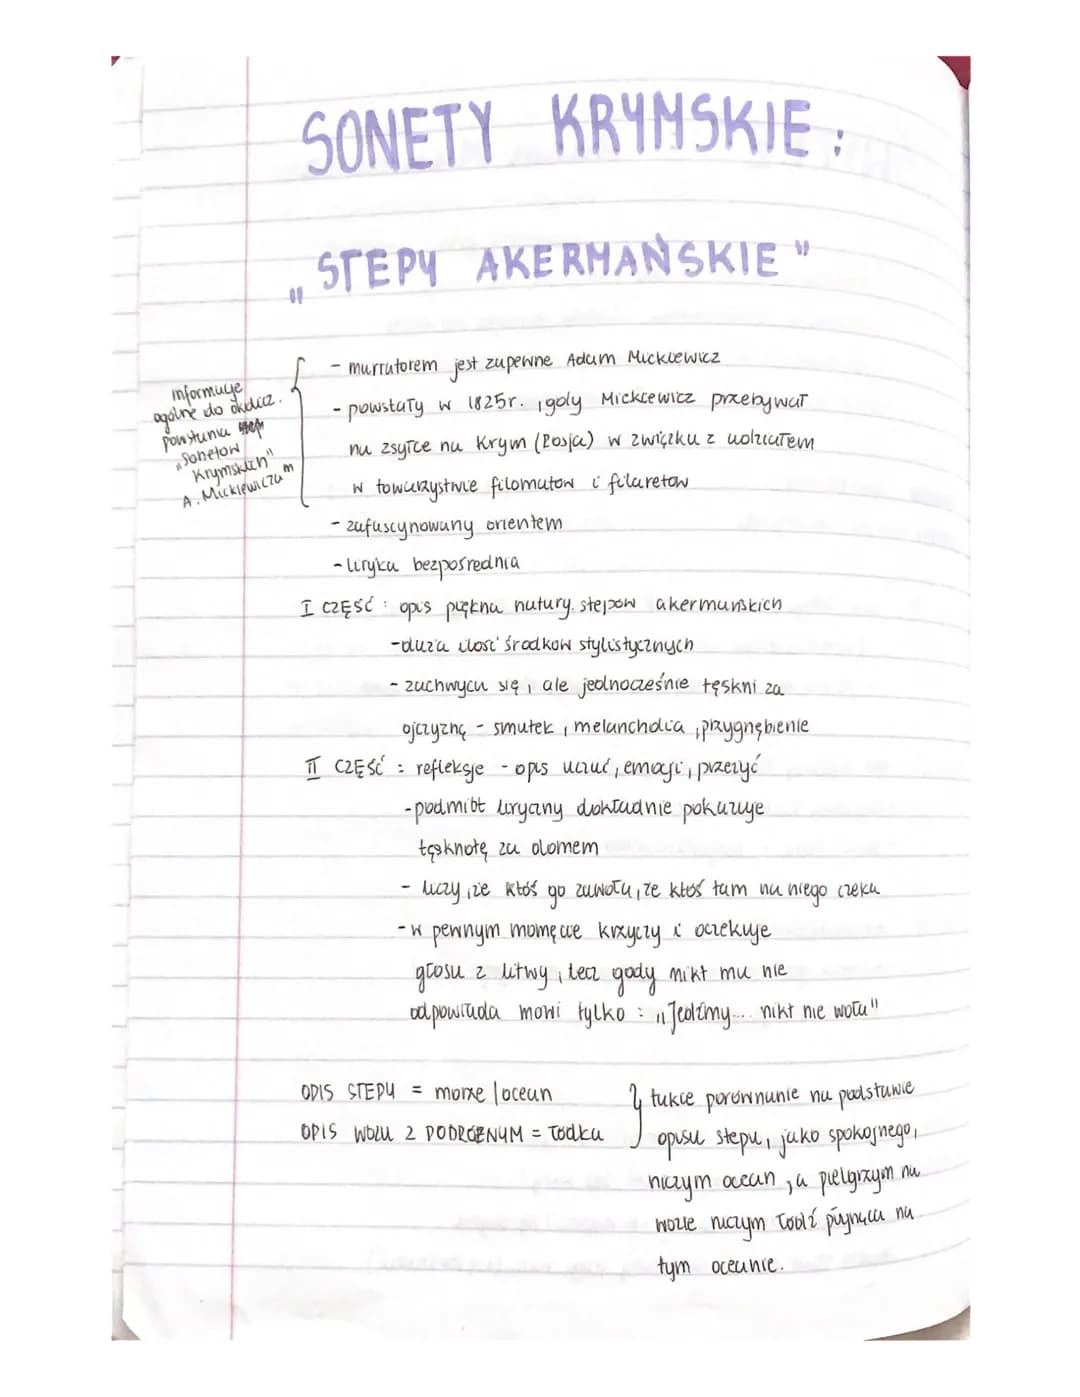 SONETY KRYMSKIE :
„STEPY AKERMAŃSKIE"
informuje
ogólne do okolicz.
powstania
„Sonetow
Krymskich"
A. Mickiewicza
- narratorem jest zapewne Adam Mickiewicz
- powstały w 1825r. , gdy Mickiewicz przebywał
na zsyłce na Krym (Rosja) w związku z udziałem
w towarzystwie filomatow i filaretow
- zafascynowany orientem
- liryka bezpośrednia
I CZĘŚĆ : opis piękna natury. stepow akermańskich
- duża ilość środkow stylistycznych
- zachwyca się , ale jednocześnie tęskni za
ojczyzną - smutek , melancholia , przygnębienie
II CZĘŚĆ : refleksje - opis uczuć , emocji , przeżyć
- podmiot liryczny dokładnie pokazuje
tęsknotę za domem
- liczy , że ktoś go zawoła , że ktoś tam na niego czeka
- w pewnym momęcie krzyczy i oczekuje
głosu z litwy , lecz gdy nikt mu nie
odpowiada mowi tylko : „Jedźmy... nikt nie woła"
OPIS STEPU = morze / ocean
OPIS WOZU Z PODRÓŻNYM = łodka
} takie porównanie na podstawie
opisu stepu, jako spokojnego,
niczym ocean , a pielgrzym na
wozie niczym łodź płynąca na
tym oceanie.